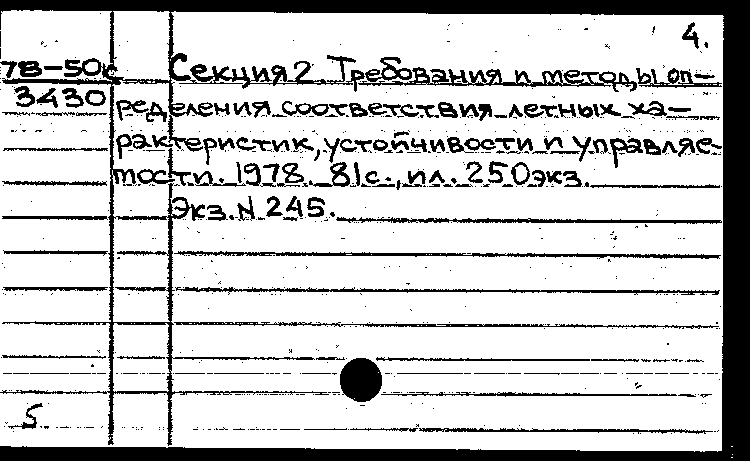 4.
78-50с Секция 2. Требования и методы оп-
3430 ределения соответствия летных ха-
рактеристик, устойчивости и управляе-
мости. 1978. 81с., ил. 250экз.
Экз. N 245.
5